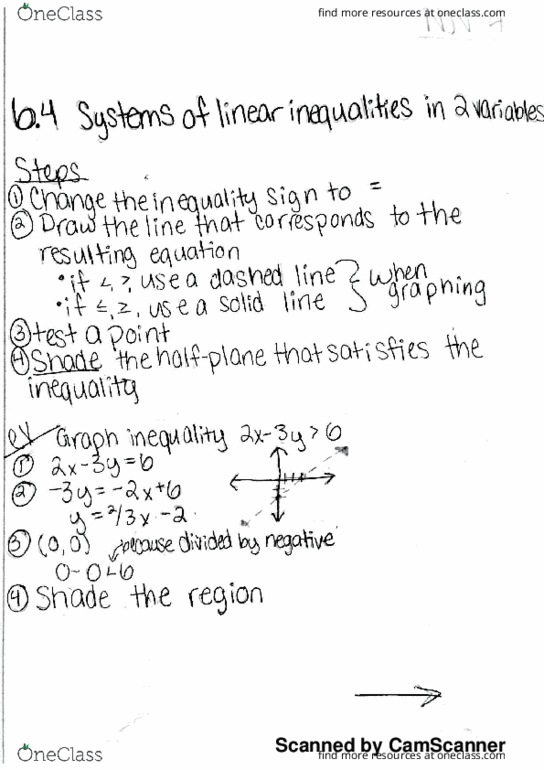 OneClass
find more resources at oneclass.com
6.4 Systems of linear inequalities in 2 variables
Steps
① Change the inequality sign to =
② Draw the line that corresponds to the
resulting equation
• if <, >, use a dashed line } when
• if ≤, ≥, use a solid line } graphing
③ test a point
④ Shade the half-plane that satisfies the
inequality
ex Graph inequality 2x-3y > 6
① 2x-3y=6
② -3y=-2x+6
y = 2/3x - 2
③ (0,0) because divided by negative
0-0<6
④ Shade the region
Scanned by CamScanner
OneClass
find more resources at oneclass.com